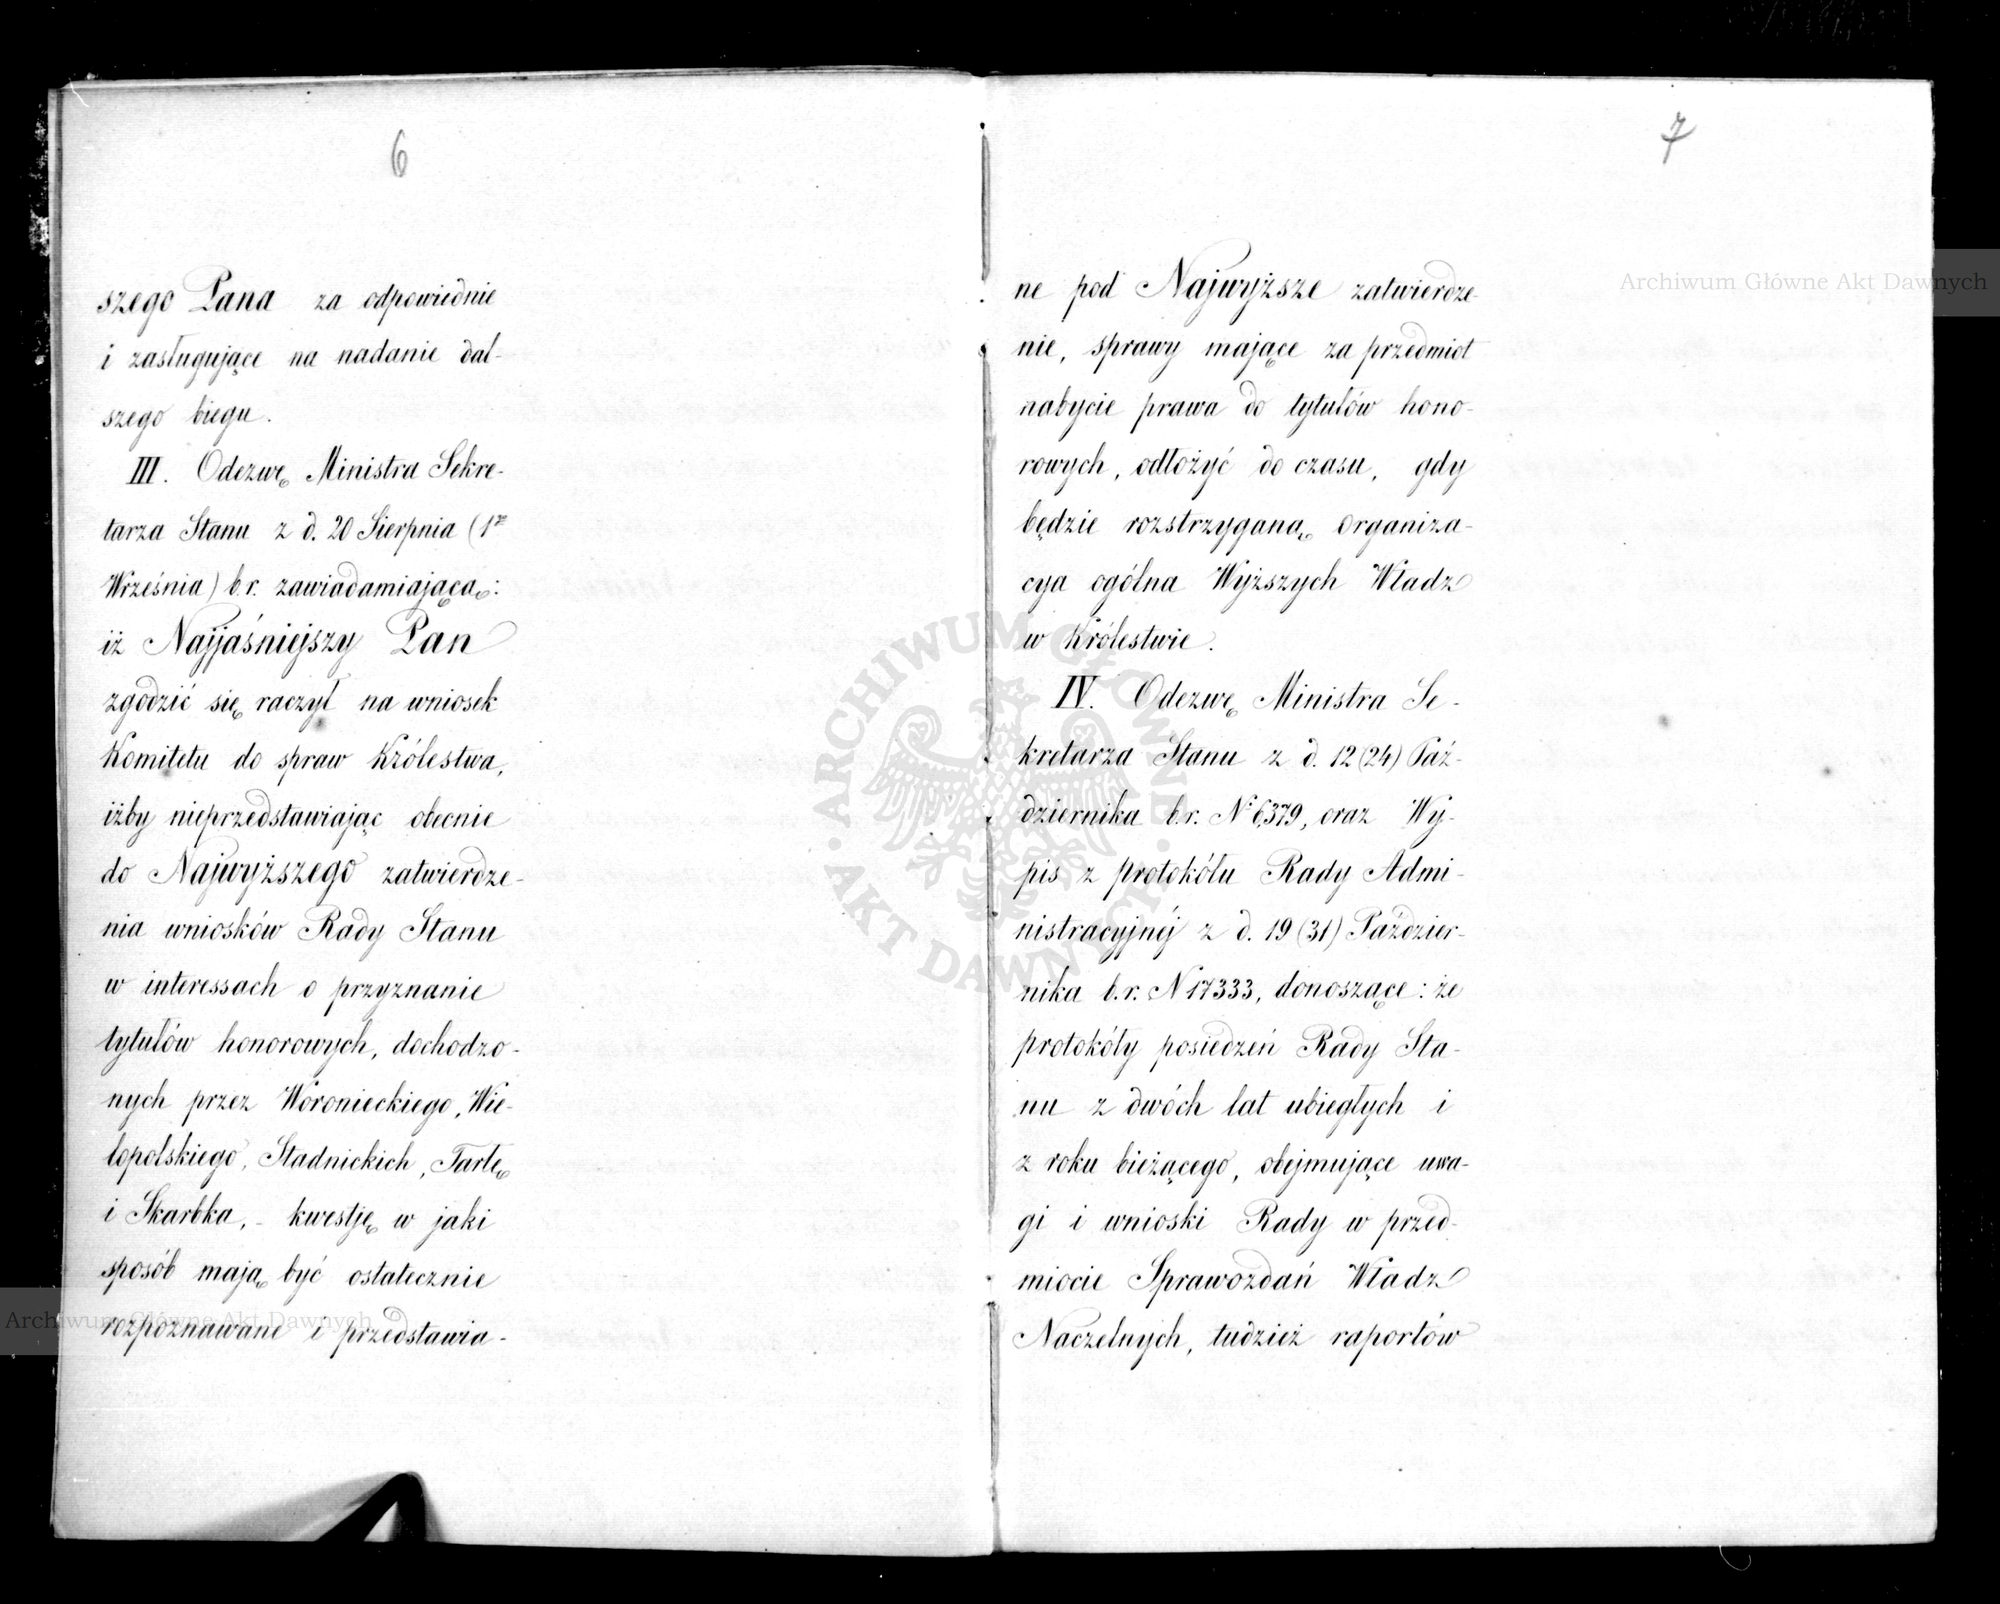 6
szego Pana za odpowiednie
i zasługujące na nadanie dal-
szego biegu.
III. Odezwę Ministra Sekre-
tarza Stanu z d. 20 Sierpnia (1
Września) b.r. zawiadamiającą:
iż Najjaśniejszy Pan
zgodzić się raczył na wniosek
Komitetu do spraw Królestwa,
iżby nieprzedstawiając obecnie
do Najwyższego zatwierdze-
nia wniosków Rady Stanu
w interessach o przyznanie
tytułów honorowych, dochodzo-
nych przez Woronieckiego, Wie-
lopolskiego, Stadnickich, Tarłę
i Skarbka, - kwestję w jaki
sposób mają być ostatecznie
rozpoznawane i przedstawia-
7
ne pod Najwyższe zatwierdze-
nie, sprawy mające za przedmiot
nabycie prawa do tytułów hono-
rowych, odłożyć do czasu, gdy
będzie rozstrzyganą organiza-
cya ogólna Wyższych Władz
w Królestwie.
IV. Odezwę Ministra Se-
kretarza Stanu z d. 12 (24) Paź-
dziernika b.r. N 6,379, oraz Wy-
pis z protokółu Rady Admi-
nistracyjnéj z d. 19 (31) Paździer-
nika b.r. N 17333, donoszące: że
protokóły posiedzeń Rady Sta-
nu z dwóch lat ubiegłych i
z roku bieżącego, obejmujące uwa-
gi i wnioski Rady w przed-
miocie Sprawozdań Władz
Naczelnych, tudzież raportów
Archiwum Główne Akt Dawnych
Archiwum Główne Akt Dawnych
ARCHIWUM GŁÓWNE AKT DAWNYCH